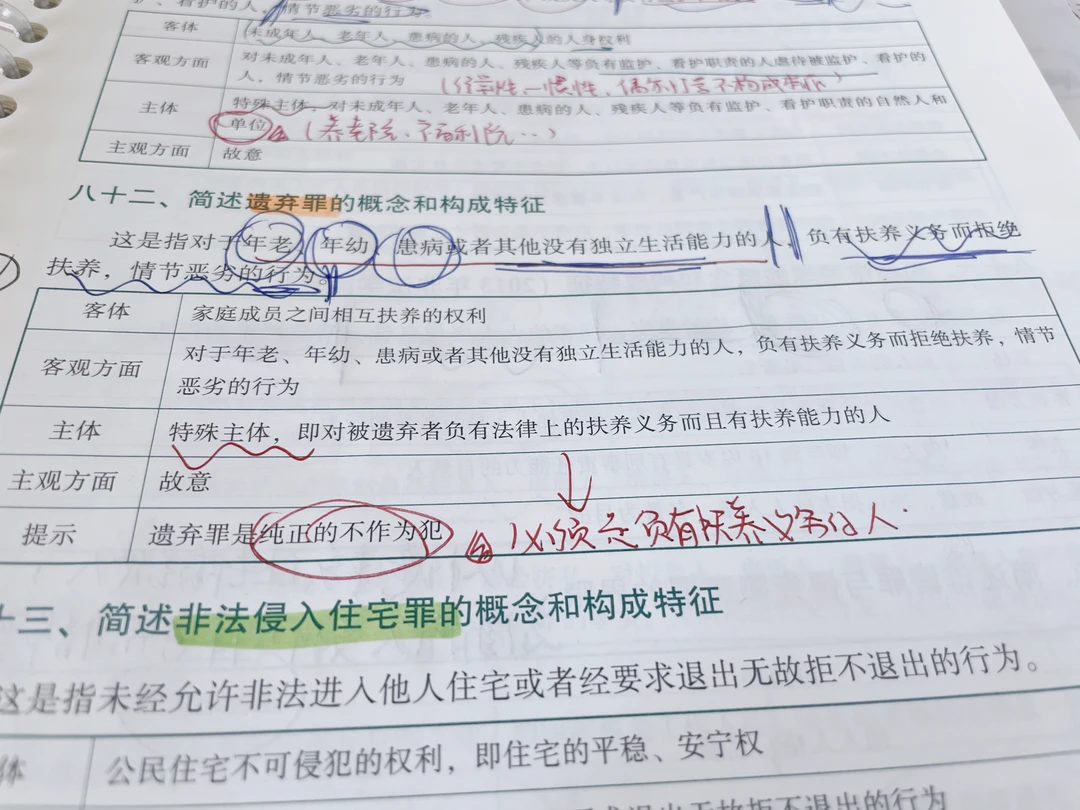 看护的人，情节恶劣的行为。
客体 未成年人、老年人、患病的人、残疾人的人身权利
客观方面 对未成年人、老年人、患病的人、残疾人等负有监护、看护职责的人虐待被监护、看护的
人，情节恶劣的行为 (经常性、一惯性、偶尔打骂不构成本罪)
主体 特殊主体，对未成年人、老年人、患病的人、残疾人等负有监护、看护职责的自然人和
单位 (养老院、福利院…)
主观方面 故意
八十二、简述遗弃罪的概念和构成特征
这是指对于年老、年幼、患病或者其他没有独立生活能力的人，负有扶养义务而拒绝
扶养，情节恶劣的行为。
客体 家庭成员之间相互扶养的权利
客观方面 对于年老、年幼、患病或者其他没有独立生活能力的人，负有扶养义务而拒绝扶养，情节
恶劣的行为
主体 特殊主体，即对被遗弃者负有法律上的扶养义务而且有扶养能力的人
主观方面 故意
提示 遗弃罪是纯正的不作为犯 必须是负有扶养义务的人.
十三、简述非法侵入住宅罪的概念和构成特征
这是指未经允许非法进入他人住宅或者经要求退出无故拒不退出的行为。
体 公民住宅不可侵犯的权利，即住宅的平稳、安宁权
退出无故拒不退出的行为